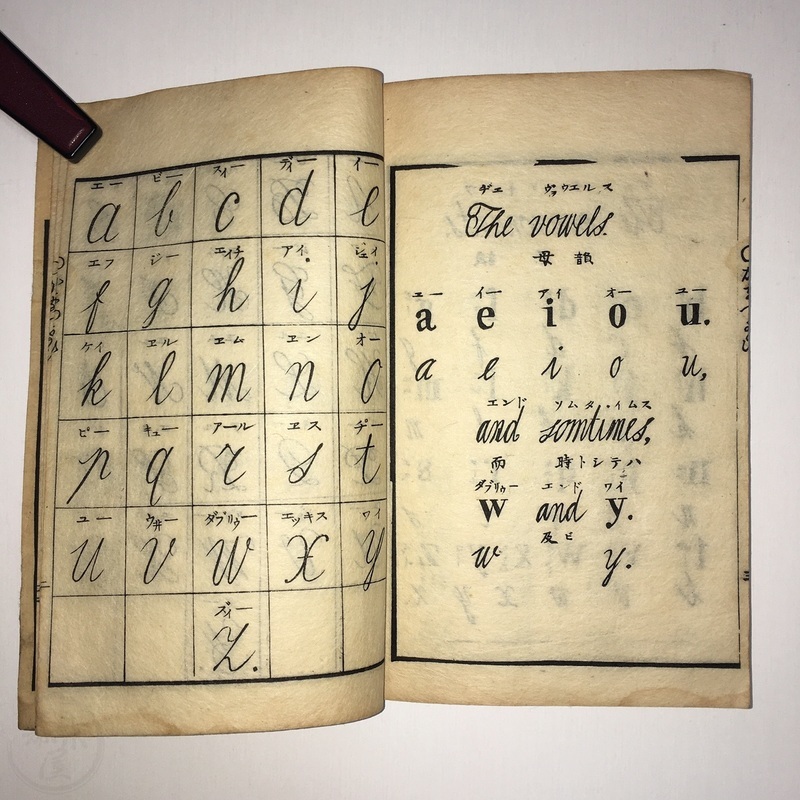 エー ビー スィー ディー イー
a b c d e
エフ ジー エイチ アイ ジェイ
f g h i j
ケイ ヱル エム ヱン オー
k l m n o
ピー キュー アール ヱス チー
p q r s t
ユー ウ井ー ダブリゥー エッキス ワイ
u v w x y
ズィー
z.
ヂエ ヴァウエルス
The vowels.
母韻
エー イー アイ オー ユー
a e i o u.
a e i o u,
エンド ソムタ・イムス
and somtimes,
而 時トシテハ
ダブリゥー エンド ワイ
w and y.
及ビ
w y.